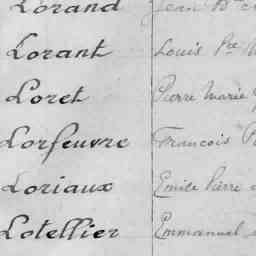 Lorand Jean Bte
Lorant Louis Pre
Loret Pierre Marie
Lorfeuvre François
Loriaux Emile Pierre
Lotellier Emmanuel